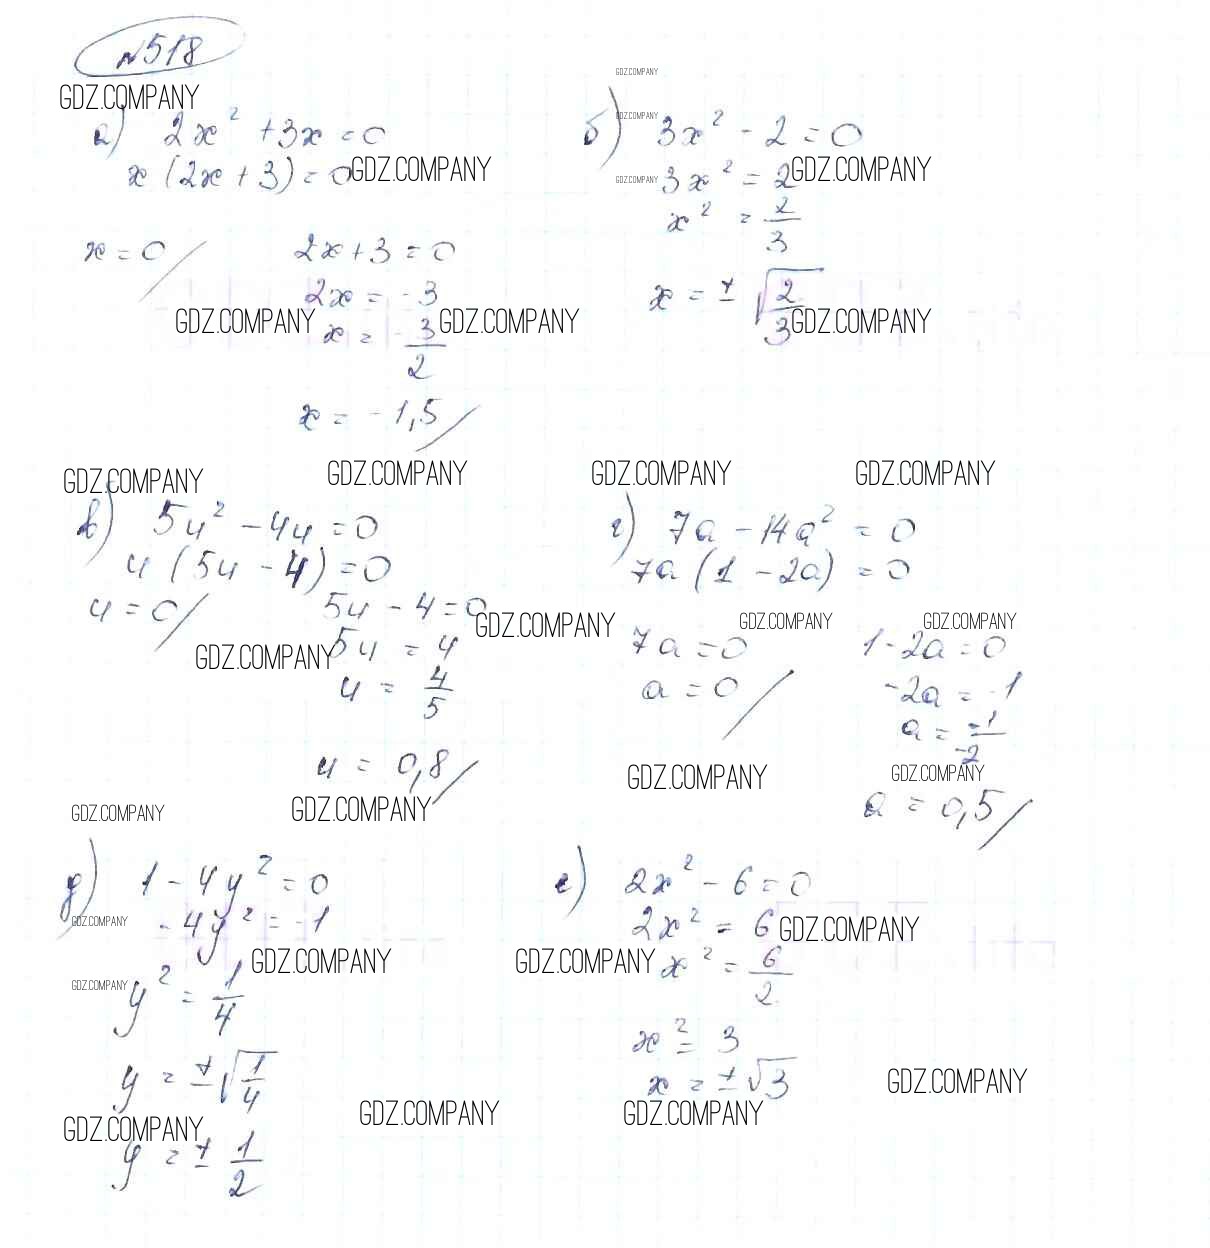 №518
GDZ.COMPANY
GDZ.COMPANY
GDZ.COMPANY
а) 2x² + 3x = 0
x (2x + 3) = 0
GDZ.COMPANY
x = 0
2x + 3 = 0
2x = -3
GDZ.COMPANY
x = -3/2
GDZ.COMPANY
x = -1,5
б) 3x² - 2 = 0
GDZ.COMPANY
3x² = 2
GDZ.COMPANY
x² = 2/3
x = ± √2/3
GDZ.COMPANY
GDZ.COMPANY
GDZ.COMPANY
GDZ.COMPANY
GDZ.COMPANY
в) 5u² - 4u = 0
u (5u - 4) = 0
u = 0
5u - 4 = 0
GDZ.COMPANY
GDZ.COMPANY
5u = 4
u = 4/5
u = 0,8
г) 7a - 14a² = 0
7a (1 - 2a) = 0
GDZ.COMPANY
GDZ.COMPANY
7a = 0
a = 0
1 - 2a = 0
-2a = -1
a = -1/-2
GDZ.COMPANY
GDZ.COMPANY
a = 0,5
GDZ.COMPANY
GDZ.COMPANY
д) 1 - 4y² = 0
GDZ.COMPANY
-4y² = -1
GDZ.COMPANY
GDZ.COMPANY
y² = 1/4
y = ± √1/4
GDZ.COMPANY
y = ± 1/2
е) 2x² - 6 = 0
2x² = 6
GDZ.COMPANY
GDZ.COMPANY
x² = 6/2
x² = 3
x = ± √3
GDZ.COMPANY
GDZ.COMPANY
GDZ.COMPANY